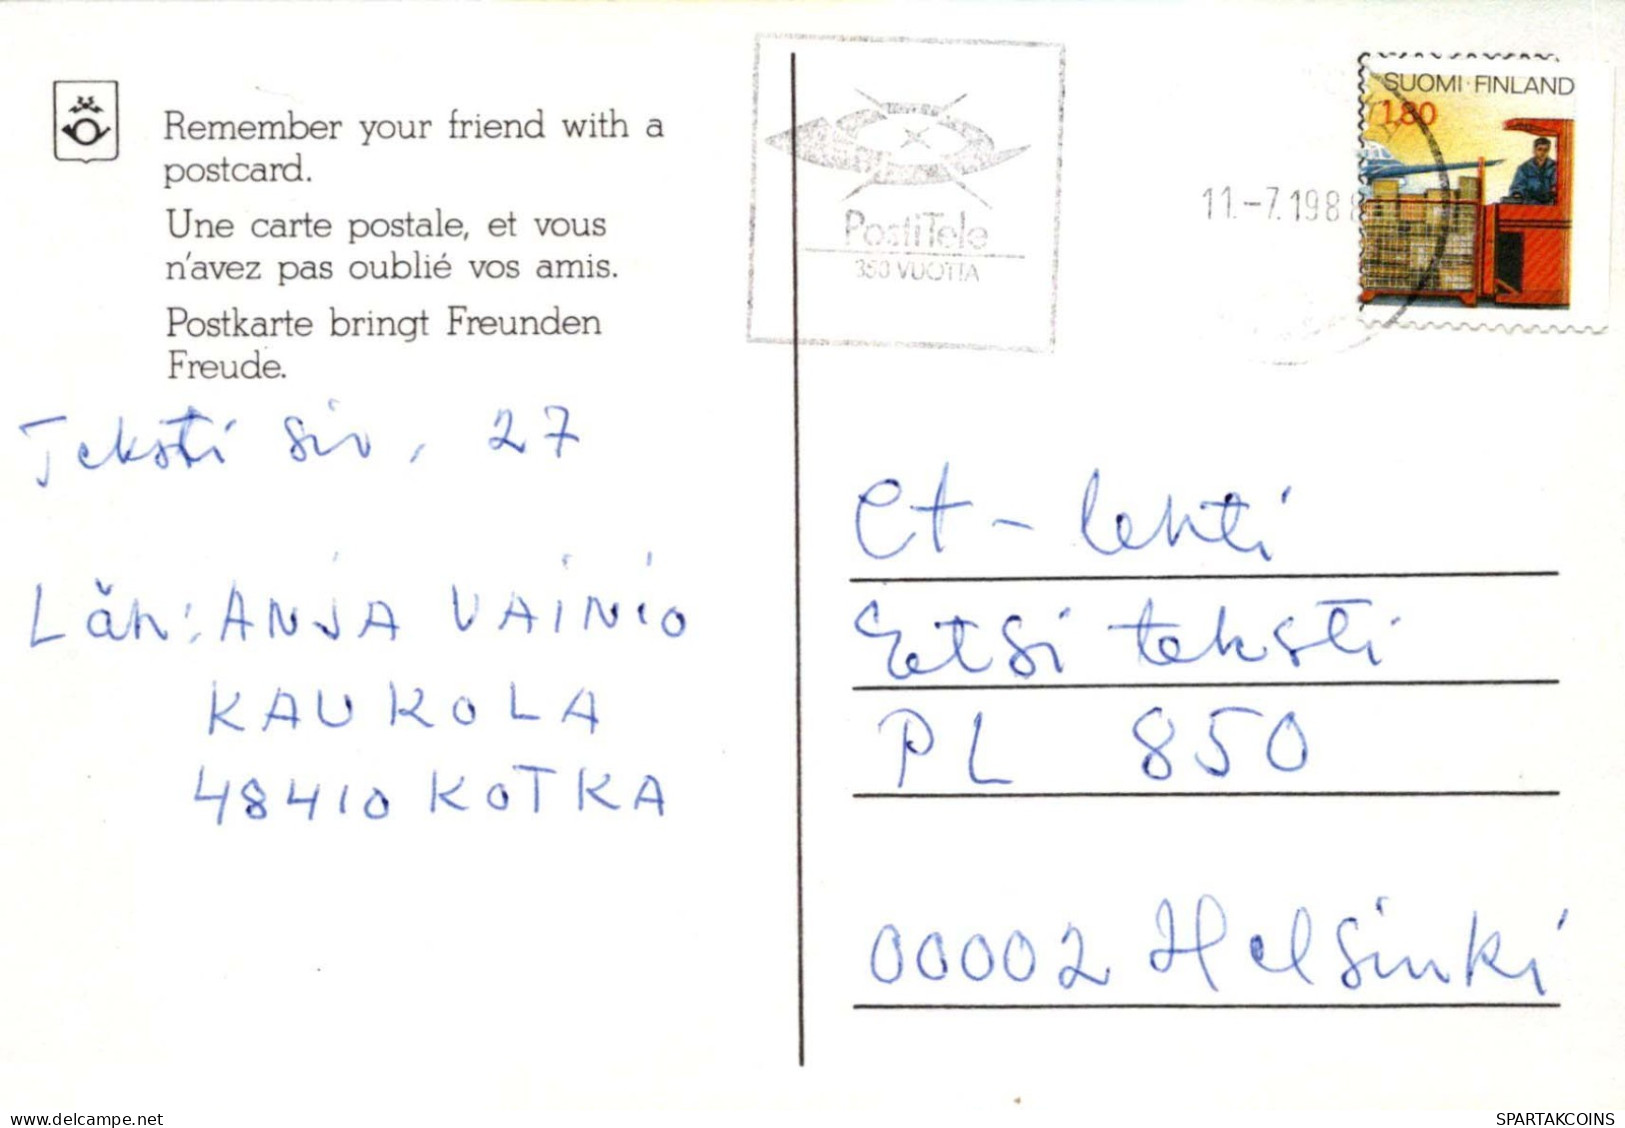 Remember your friend with a
postcard.
Une carte postale, et vous
n'avez pas oublié vos amis.
Postkarte bringt Freunden
Freude.
Teksti siv. 27
Läh: ANJA VAINIO
KAUKOLA
48410 KOTKA
PostiTele
350 VUOTTA
11.-7.1988
SUOMI·FINLAND
1,80
et-lehti
Etsi teksti
PL 850
00002 Helsinki
www.delcampe.net
SPARTAKCOINS